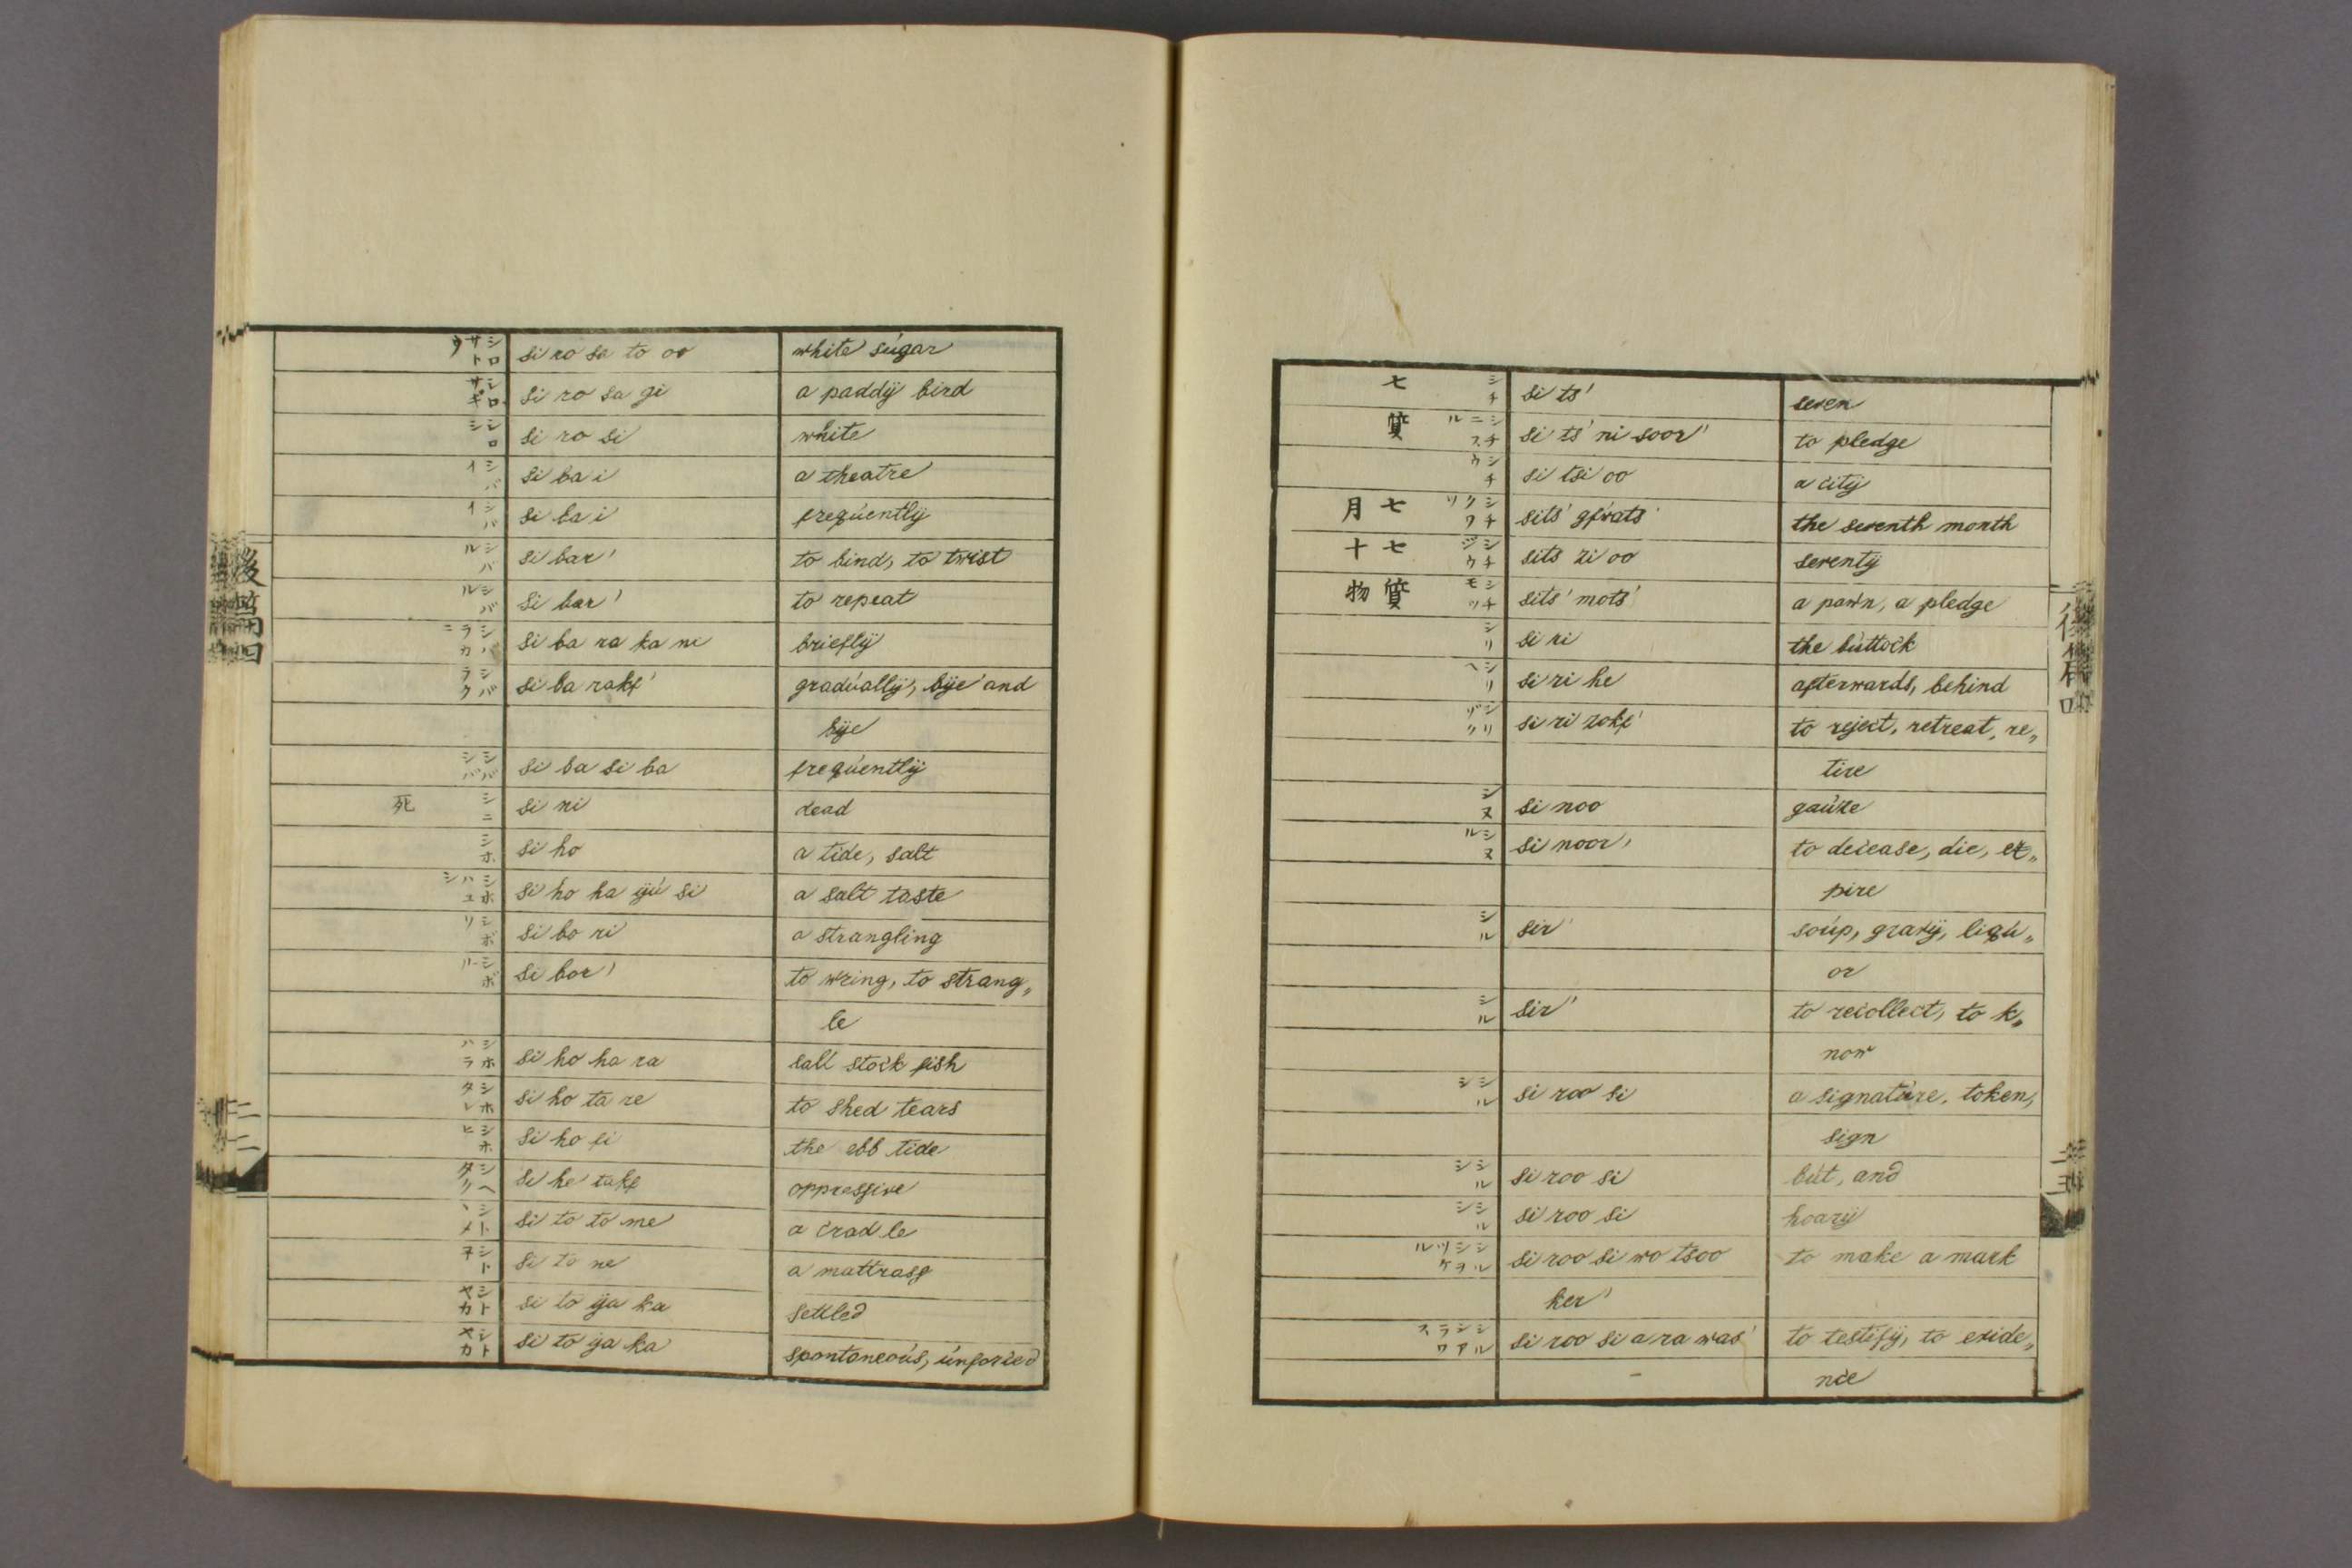 シロサトウ si ro sa to oo white sugar
シロサギ si ro sa gi a paddÿ bird
シロシ si ro si white
シバイ si ba i a theatre
シバイ si ba i frequentlÿ
シバル si bar' to bind, to twist
シバル si bar' to repeat
シバラカニ si ba ra ka ni brieflÿ
シバラク si ba rakf' graduallÿ, bÿe and
bÿe
シバシバ si ba si ba frequentlÿ
死 シニ si ni dead
シホ si ho a tide, salt
シホハユシ si ho ha ÿu si a salt taste
シボリ si bo ri a strangling
シボル si bor' to wring, to strang„
le
シホハラ si ho ha ra sall stock fish
シホタレ si ho ta re to shed tears
シホヒ si ho fi the ebb tide
シヘタク si he takf oppressive
シトヽメ si to to me a cradle
シトネ si to ne a mattrass
シトヤカ si to ÿa ka settled
シトヤカ si to ÿa ka spontaneous, unforced
七 シチ si ts' seven
質 シチニスル si ts' ni soor' to pledge
シチウ si tsi oo a citÿ
七月 シチクワツ sits' gfwats' the seventh month
七十 シチジウ sits zi oo seventÿ
質物 シチモツ sits' mots' a pawn, a pledge
シリ si ri the buttock
シリヘ si ri he afterwards, behind
シリゾク si ri zokf' to reject, retreat, re„
tire
シヌ si noo gauze
シヌル si noor' to decease, die, ex„
pire
シル sir' soup, gravÿ, liqu„
or
シル sir' to recollect, to k„
now
シルシ si roo si a signature, token,
sign
シルシ si roo si but, and
シルシ si roo si hoarÿ
シルシヲツケル si roo si wo tsoo to make a mark
ker'
シルシアラワス si roo si a ra was' to testifÿ, to evide„
nce